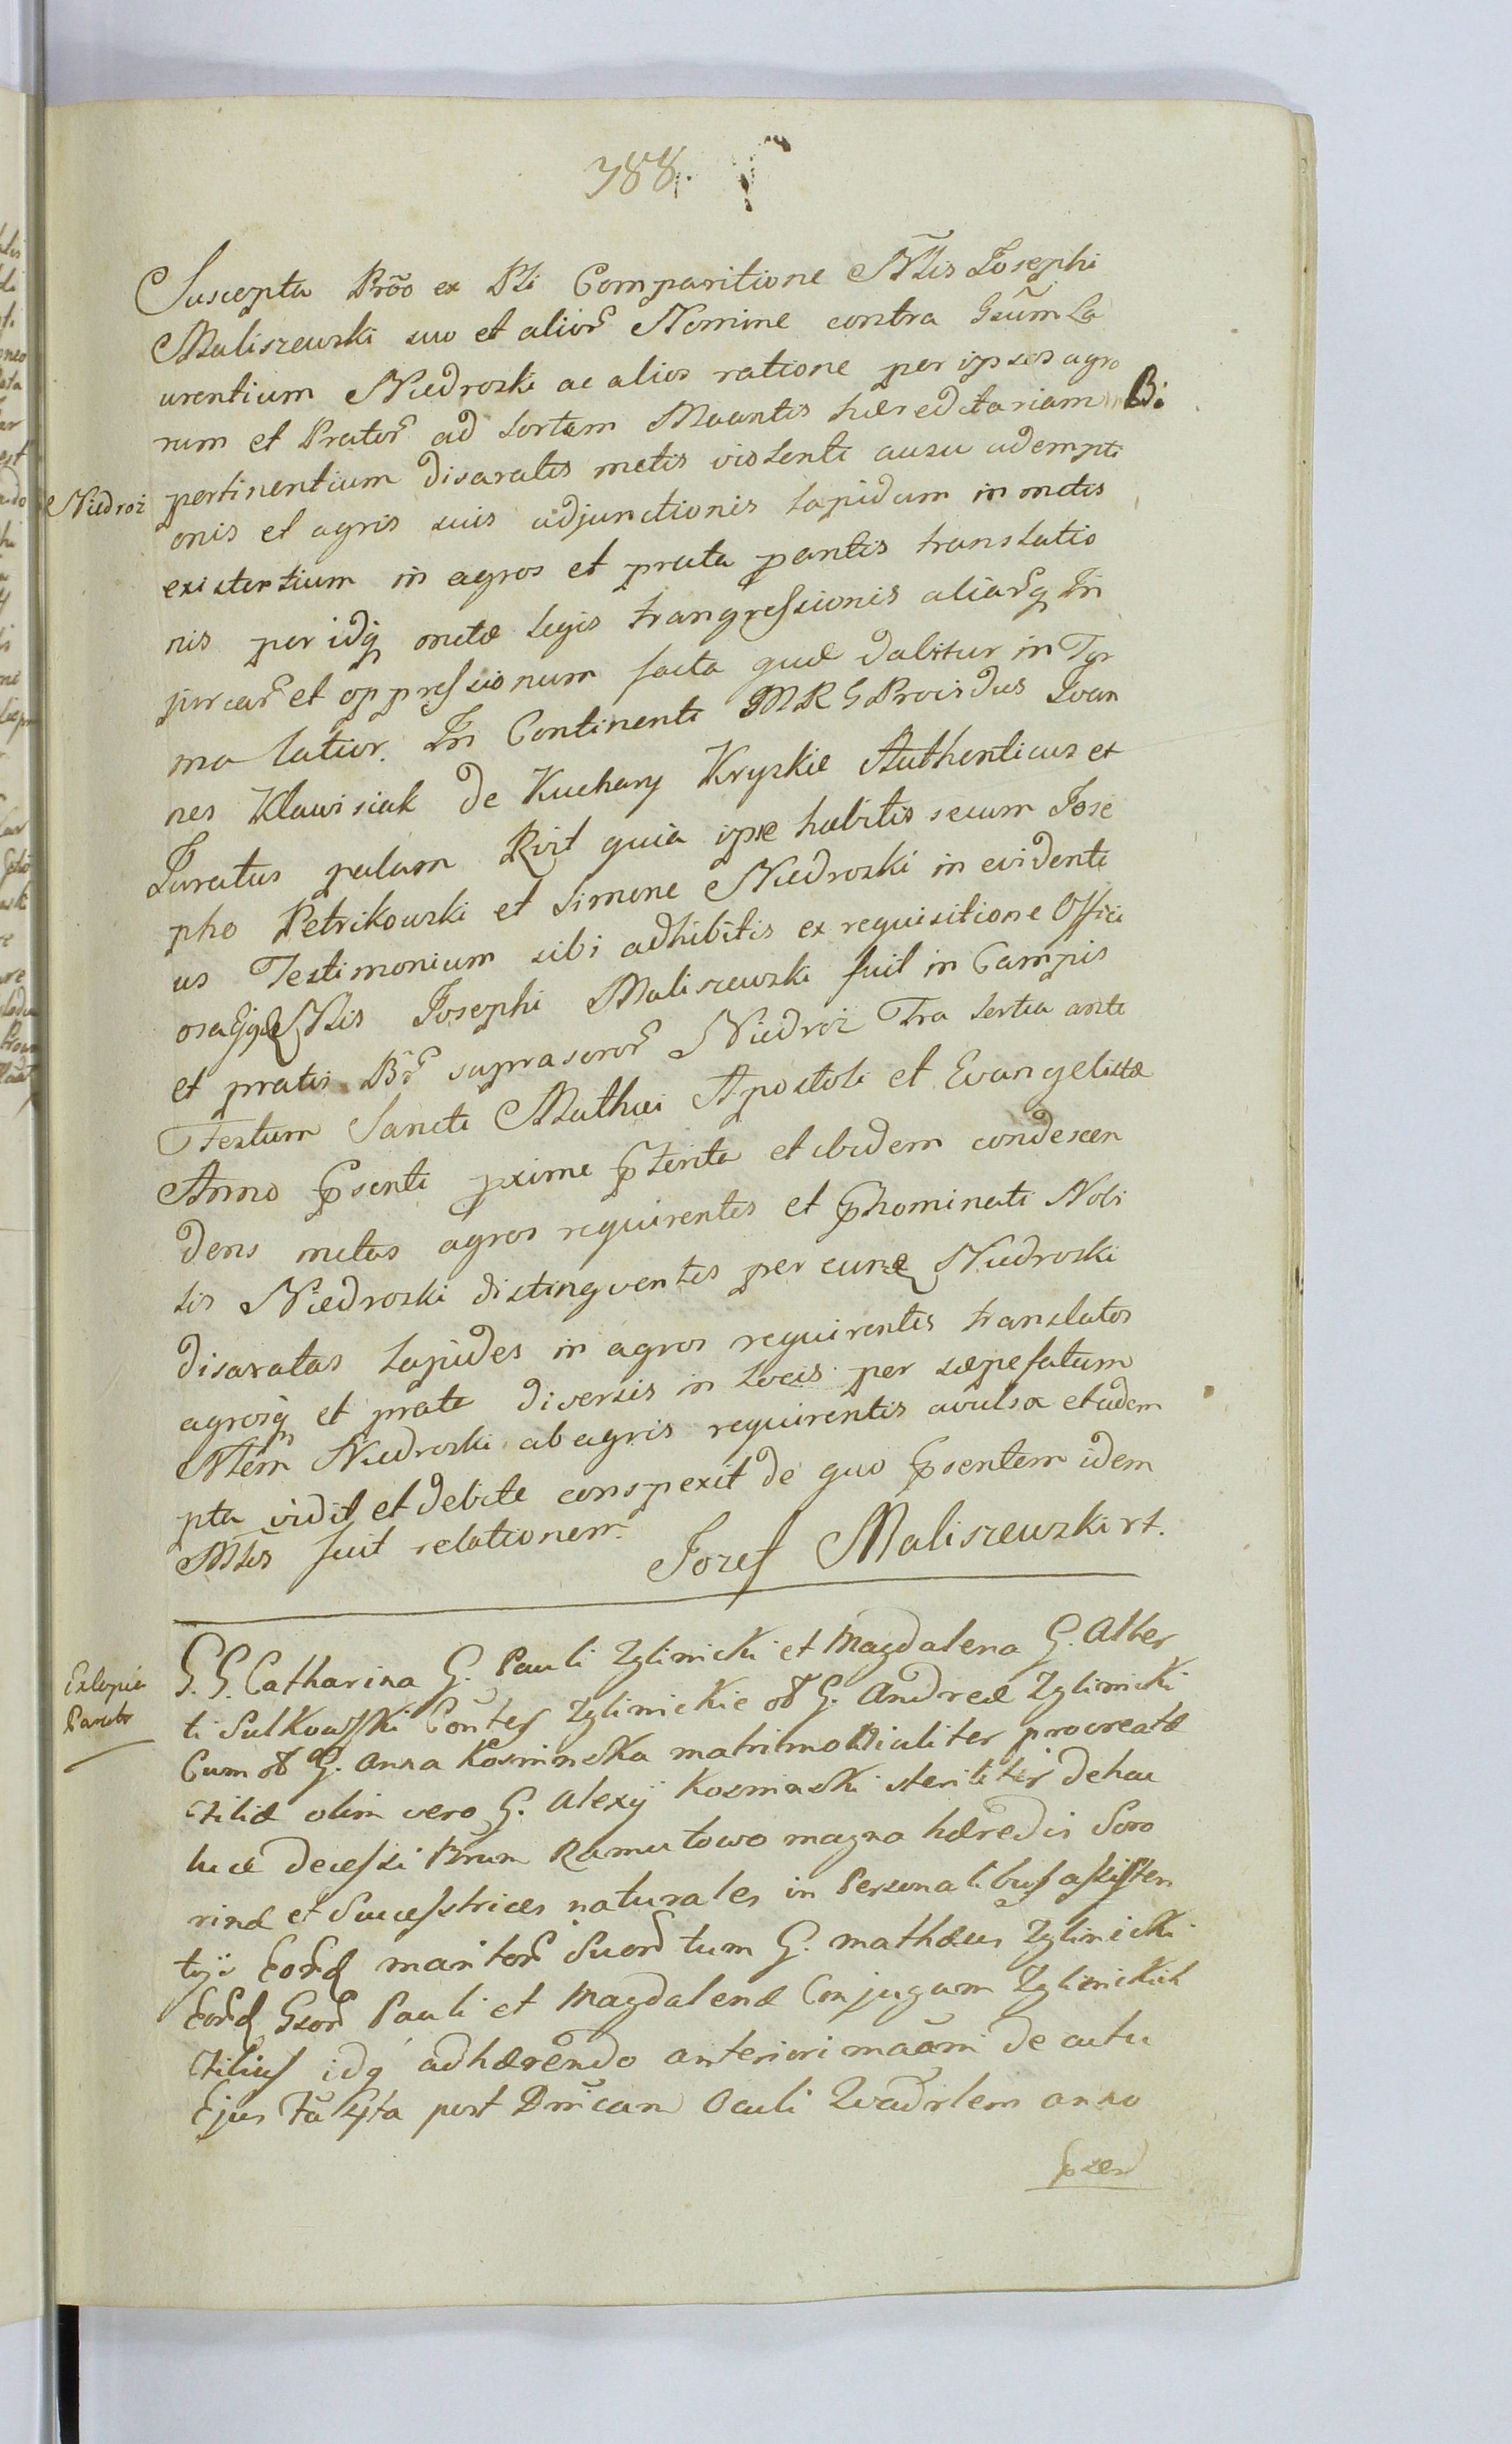 788.
Suscepta Prõõ ex Pli Comparitione Nlis Josephi
Maliszewski suo et alior Nomine contra Gsũm La
urentium Niedroski ac alios ratione per ipsos agro
rum et Prator ad sortem Maantis hæreditariam Bi
Niedroż
pertinentium disaratis metis violenti ausu adempti
onis et agris suis adjunctionis lapidum in metis
existentium in agros et prata pantis translatio
nis per idq metæ legis trangressionis aliarq In
juriar et oppressionum facta quæ dabitur in Ter
mo latior. In Continenti MRG Providus Ioan
nes Klawisiak de Kuchary Kryskie Authenticus et
Juratus palam Rvit quia ipse habitis secum Jose
pho Petrikowski et Simone Niedroski in evidenti
us Testimonium sibi adhibitis ex requisitione Offici
osa Ejqd Nlis Josephi Maliszewski fuit in Campis
et pratis Br suprascror Niedroż Fra tertia ante
Festum Sancti Mathæi Apostoli et Evangelistæ
Anno Psenti pxime Pterita et ibidem condescen
dens metas agros requirentis et Pnominati Nobi
lis Niedroski distingventes per eund Niedroski
disaratas lapides in agros requirentis translatos
agrosq et prata diversis in locis per sæpefatum
Nlem Niedroski ab agris requirentis avulsa et adem
pta vidit et debite conspexit de quo Psentem idem
Mlis fuit relationem.
Jozef Maliszewski rt.
Exlopia
Parubr
G. G. Catharina G. Pauli Zglinicki et Magdalena G. Alber
ti Sulkowski Contes Zglinickie oð G. Andreæ Zglinicki
Cum oð G. Anna Kosminska matrimonialiter procreatæ
Filiæ olim vero G. Alexij Kosminski steriliter de hac
luce decessi Bnrm Ramutowo magna hæredis Soro
rinæ et Successtrices naturales in Personalibus assisten
tijs Eornd maritor Suor tum G. Mathæus Zglinicki
Eornd Gsor Pauli et Magdalenæ Conjugum Zglinickich
Filius idq adhærendo anteriori maãni de actu
Ejus Fa 4ta post Dnicam Oculi Qwadrlem anno
Psen